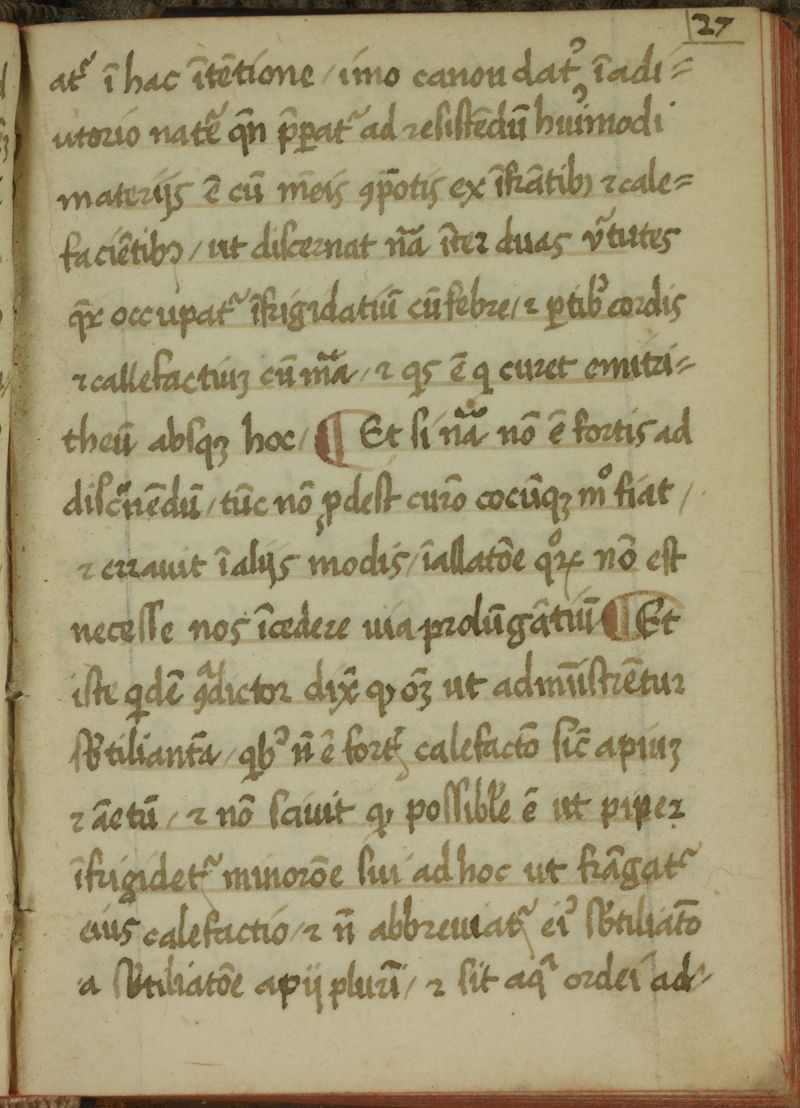 27
atᷣ ī hac ītētione / imo canon datᷣ ī adi=
utorio natē qn̄ p̄patᷣ ad resistēdū huiꝰmodi
materijs ē cū mēis ꝯpōtis ex īfrātibꝫ ⁊ cale=
faciētibꝫ / ut discernat nā īter duas vᷣtutes
qꝝ occupatᷣ īfrigidatiū cū febre / ⁊ ꝑtibꝰ cordis
⁊ callefactiuꝫ cū mā / ⁊ qs ē q curet emitri=
theū absqꝫ hoc / ¶ Et si nā nō ē fortis ad
discᷣnēdū / tūc nō ꝓdest curō cocūqꝫ mº fiat /
⁊ erravit ī alijs modis / ī allatōe qºꝝ nō est
necesse nos īcedere uia prolūgātiū ¶ Et
iste qdē ꝯᷓdictor dix̄ ꝙ oꝫ ut admīistrētur
sᷣbtiliantᷓ / qbꝰ n̄ ē fortᷣ calefactō sic̄ apiuꝫ
⁊ āetū / ⁊ nō scivit ꝙ possibłe ē ut piper
īfrigidetᷣ minorōe sui ad hoc ut frāgatᷣ
eius calefactio / ⁊ n̄ abbreuiatᷣ eiꝰ sᷣbtiliatō
a sᷣbtiliatōe apij plurī / ⁊ sit aqᷓ ordei ad-